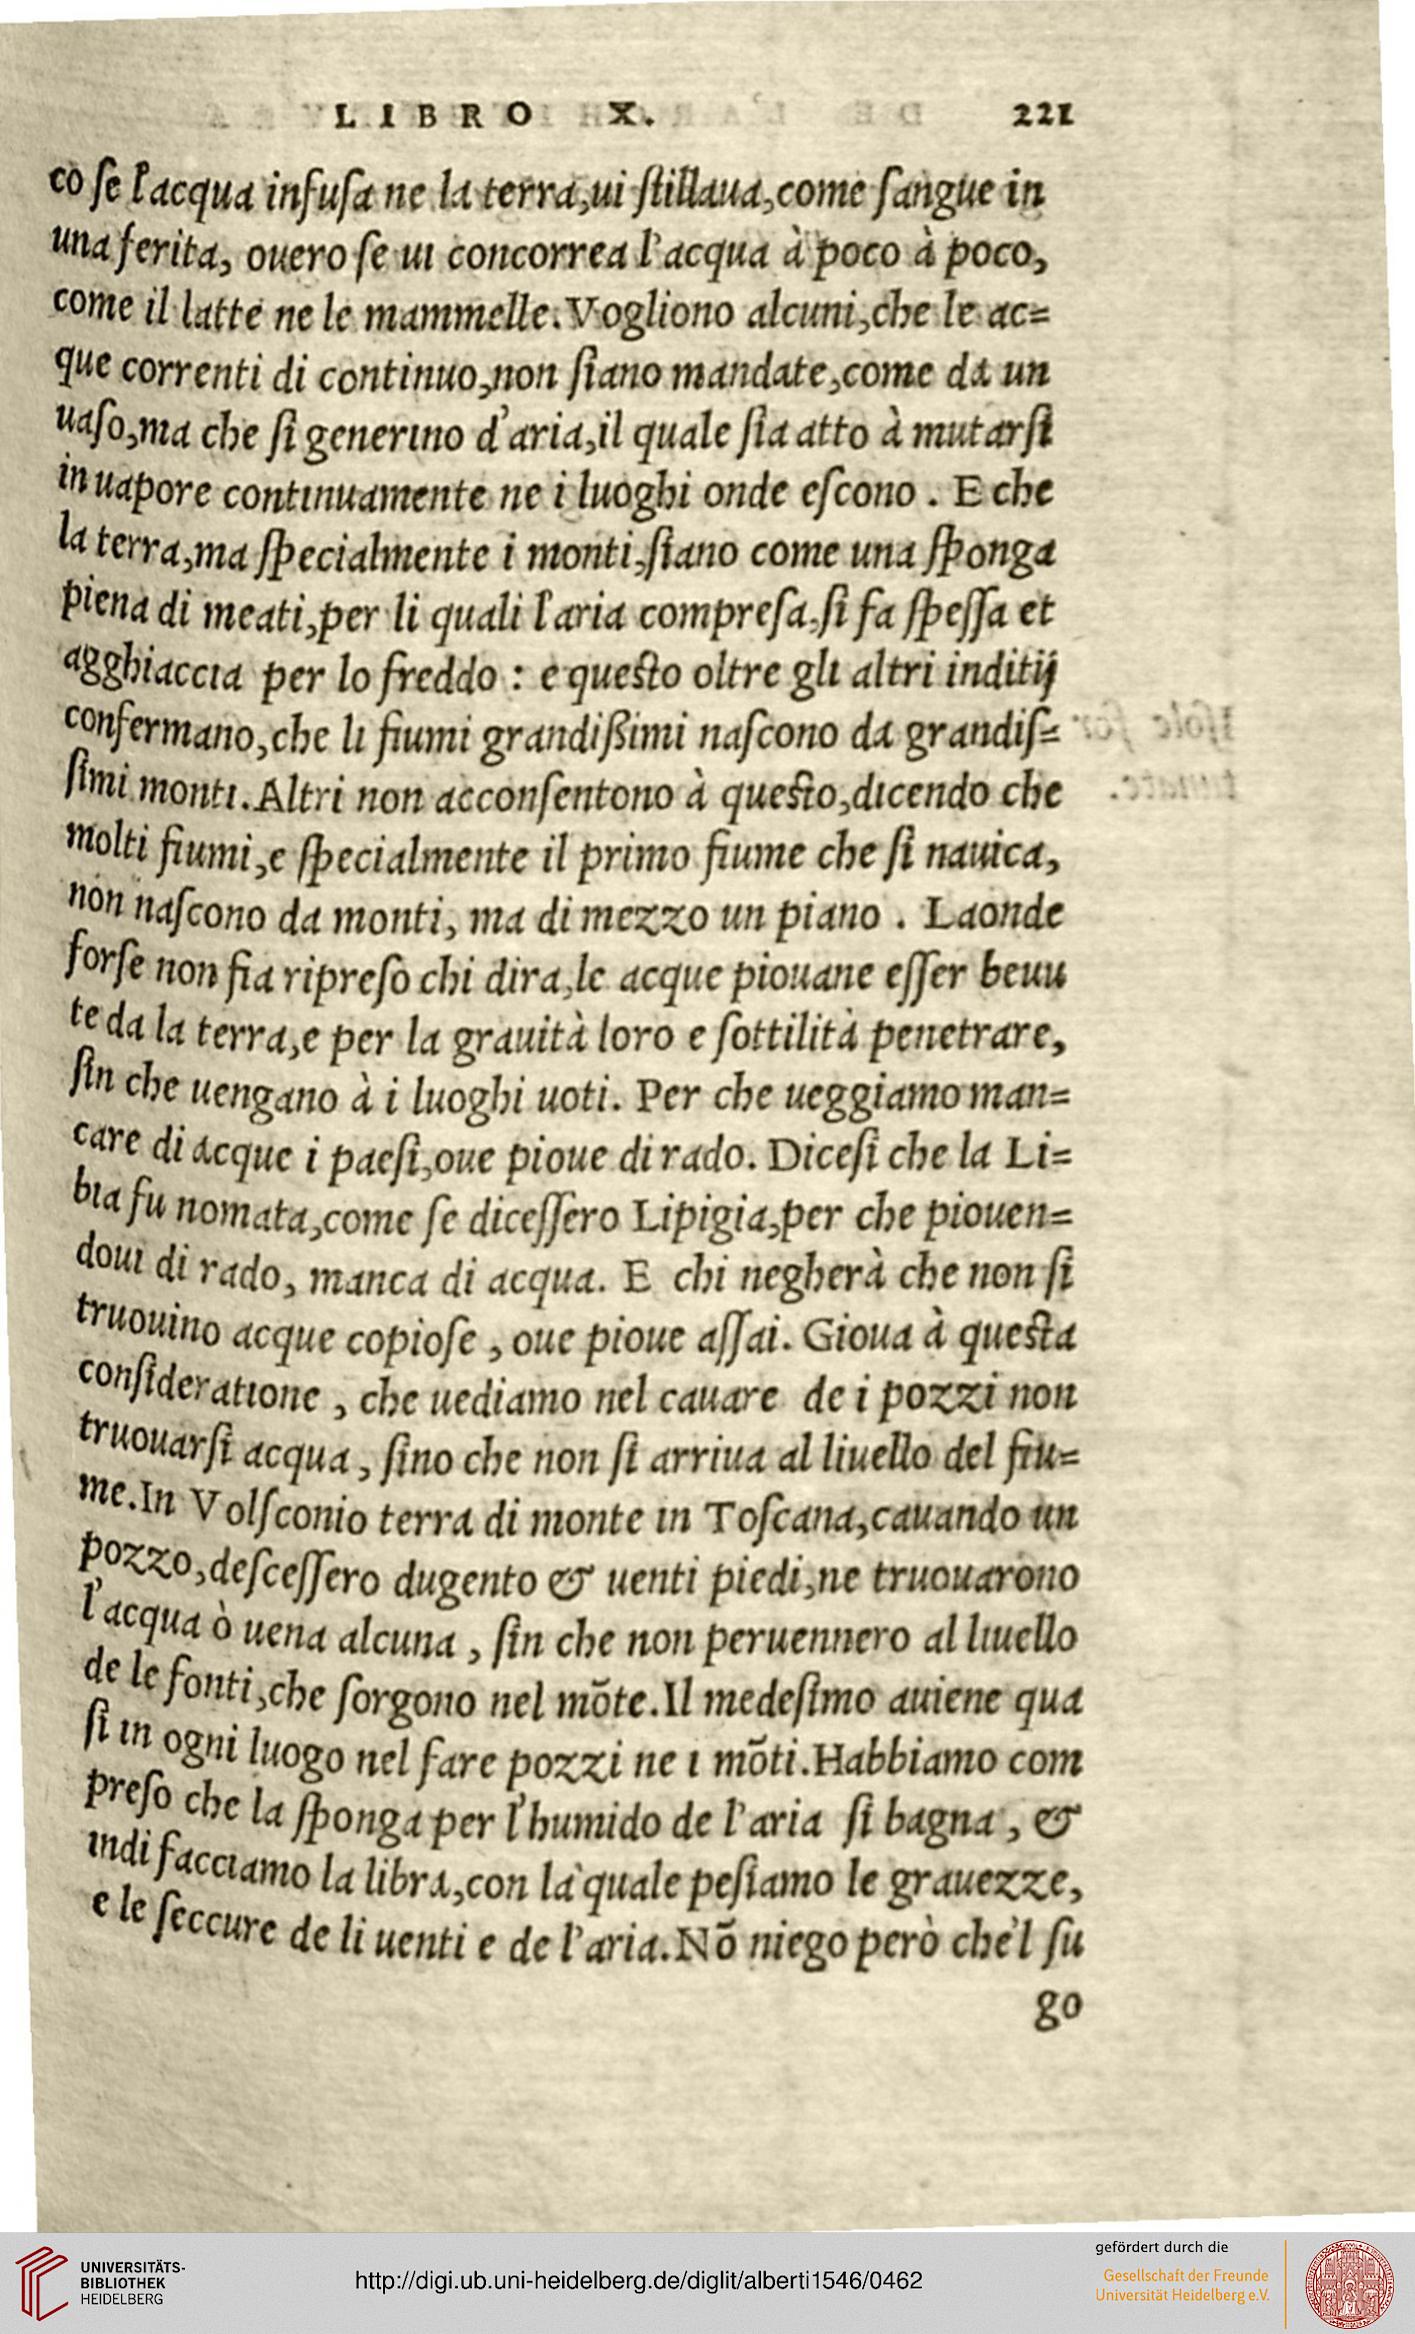 LIBRO X. 221
co ſe l'acqua infuſa ne la terra,ui ſtillaua,come ſangue in
una ferita, ouero ſe ui concorrea l'acqua à poco à poco,
come il latte ne le mammelle.Vogliono alcuni,che le ac=
que correnti di continuo,non ſiano mandate,come da un
uaſo,ma che ſi generino d'aria,il quale ſia atto à mutarſi
in uapore continuamente ne i luoghi onde eſcono . E che
la terra,ma ſpecialmente i monti,ſiano come una ſponga
piena di meati,per li quali l'aria compreſa,ſi fa ſpeſſa et
agghiaccia per lo freddo : e queſto oltre gli altri inditij
confermano,che li fiumi grandißimi naſcono da grandiſ=
ſimi monti.Altri non acconſentono à queſto,dicendo che
molti fiumi,e ſpecialmente il primo fiume che ſi nauica,
non naſcono da monti, ma di mezzo un piano . Laonde
forſe non fia ripreſo chi dira,le acque piouane eſſer beuu
te da la terra,e per la grauità loro e ſottilità penetrare,
ſin che uengano à i luoghi uoti. Per che ueggiamo man=
care di acque i paeſi,oue pioue di rado. Diceſi che la Li=
bia fu nomata,come ſe diceſſero Lipigia,per che piouen=
doui di rado, manca di acqua. E chi negherà che non ſi
truouino acque copioſe , oue pioue aſſai. Gioua à queſta
conſideratione , che uediamo nel cauare de i pozzi non
truouarſi acqua , ſino che non ſi arriua al liuello del fiu=
me.In Volſconio terra di monte in Toſcana,cauando un
pozzo,deſceſſero dugento & uenti piedi,ne truouarono
l'acqua ò uena alcuna , ſin che non peruennero al liuello
de le fonti,che ſorgono nel mōte.Il medeſimo auiene qua
ſi in ogni luogo nel fare pozzi ne i mōti.Habbiamo com
preſo che la ſponga per l'humido de l'aria ſi bagna , &
indi facciamo la libra,con la quale peſiamo le grauezze,
e le ſeccure de li uenti e de l'aria.Nō niego però che'l ſu
go
UNIVERSITÄTS-
BIBLIOTHEK
HEIDELBERG
http://digi.ub.uni-heidelberg.de/diglit/alberti1546/0462
gefördert durch die
Gesellschaft der Freunde
Universität Heidelberg e.V.